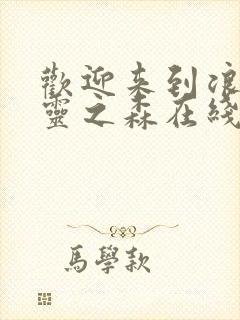 歡迎来到浪
靈之森在綫
馬學款